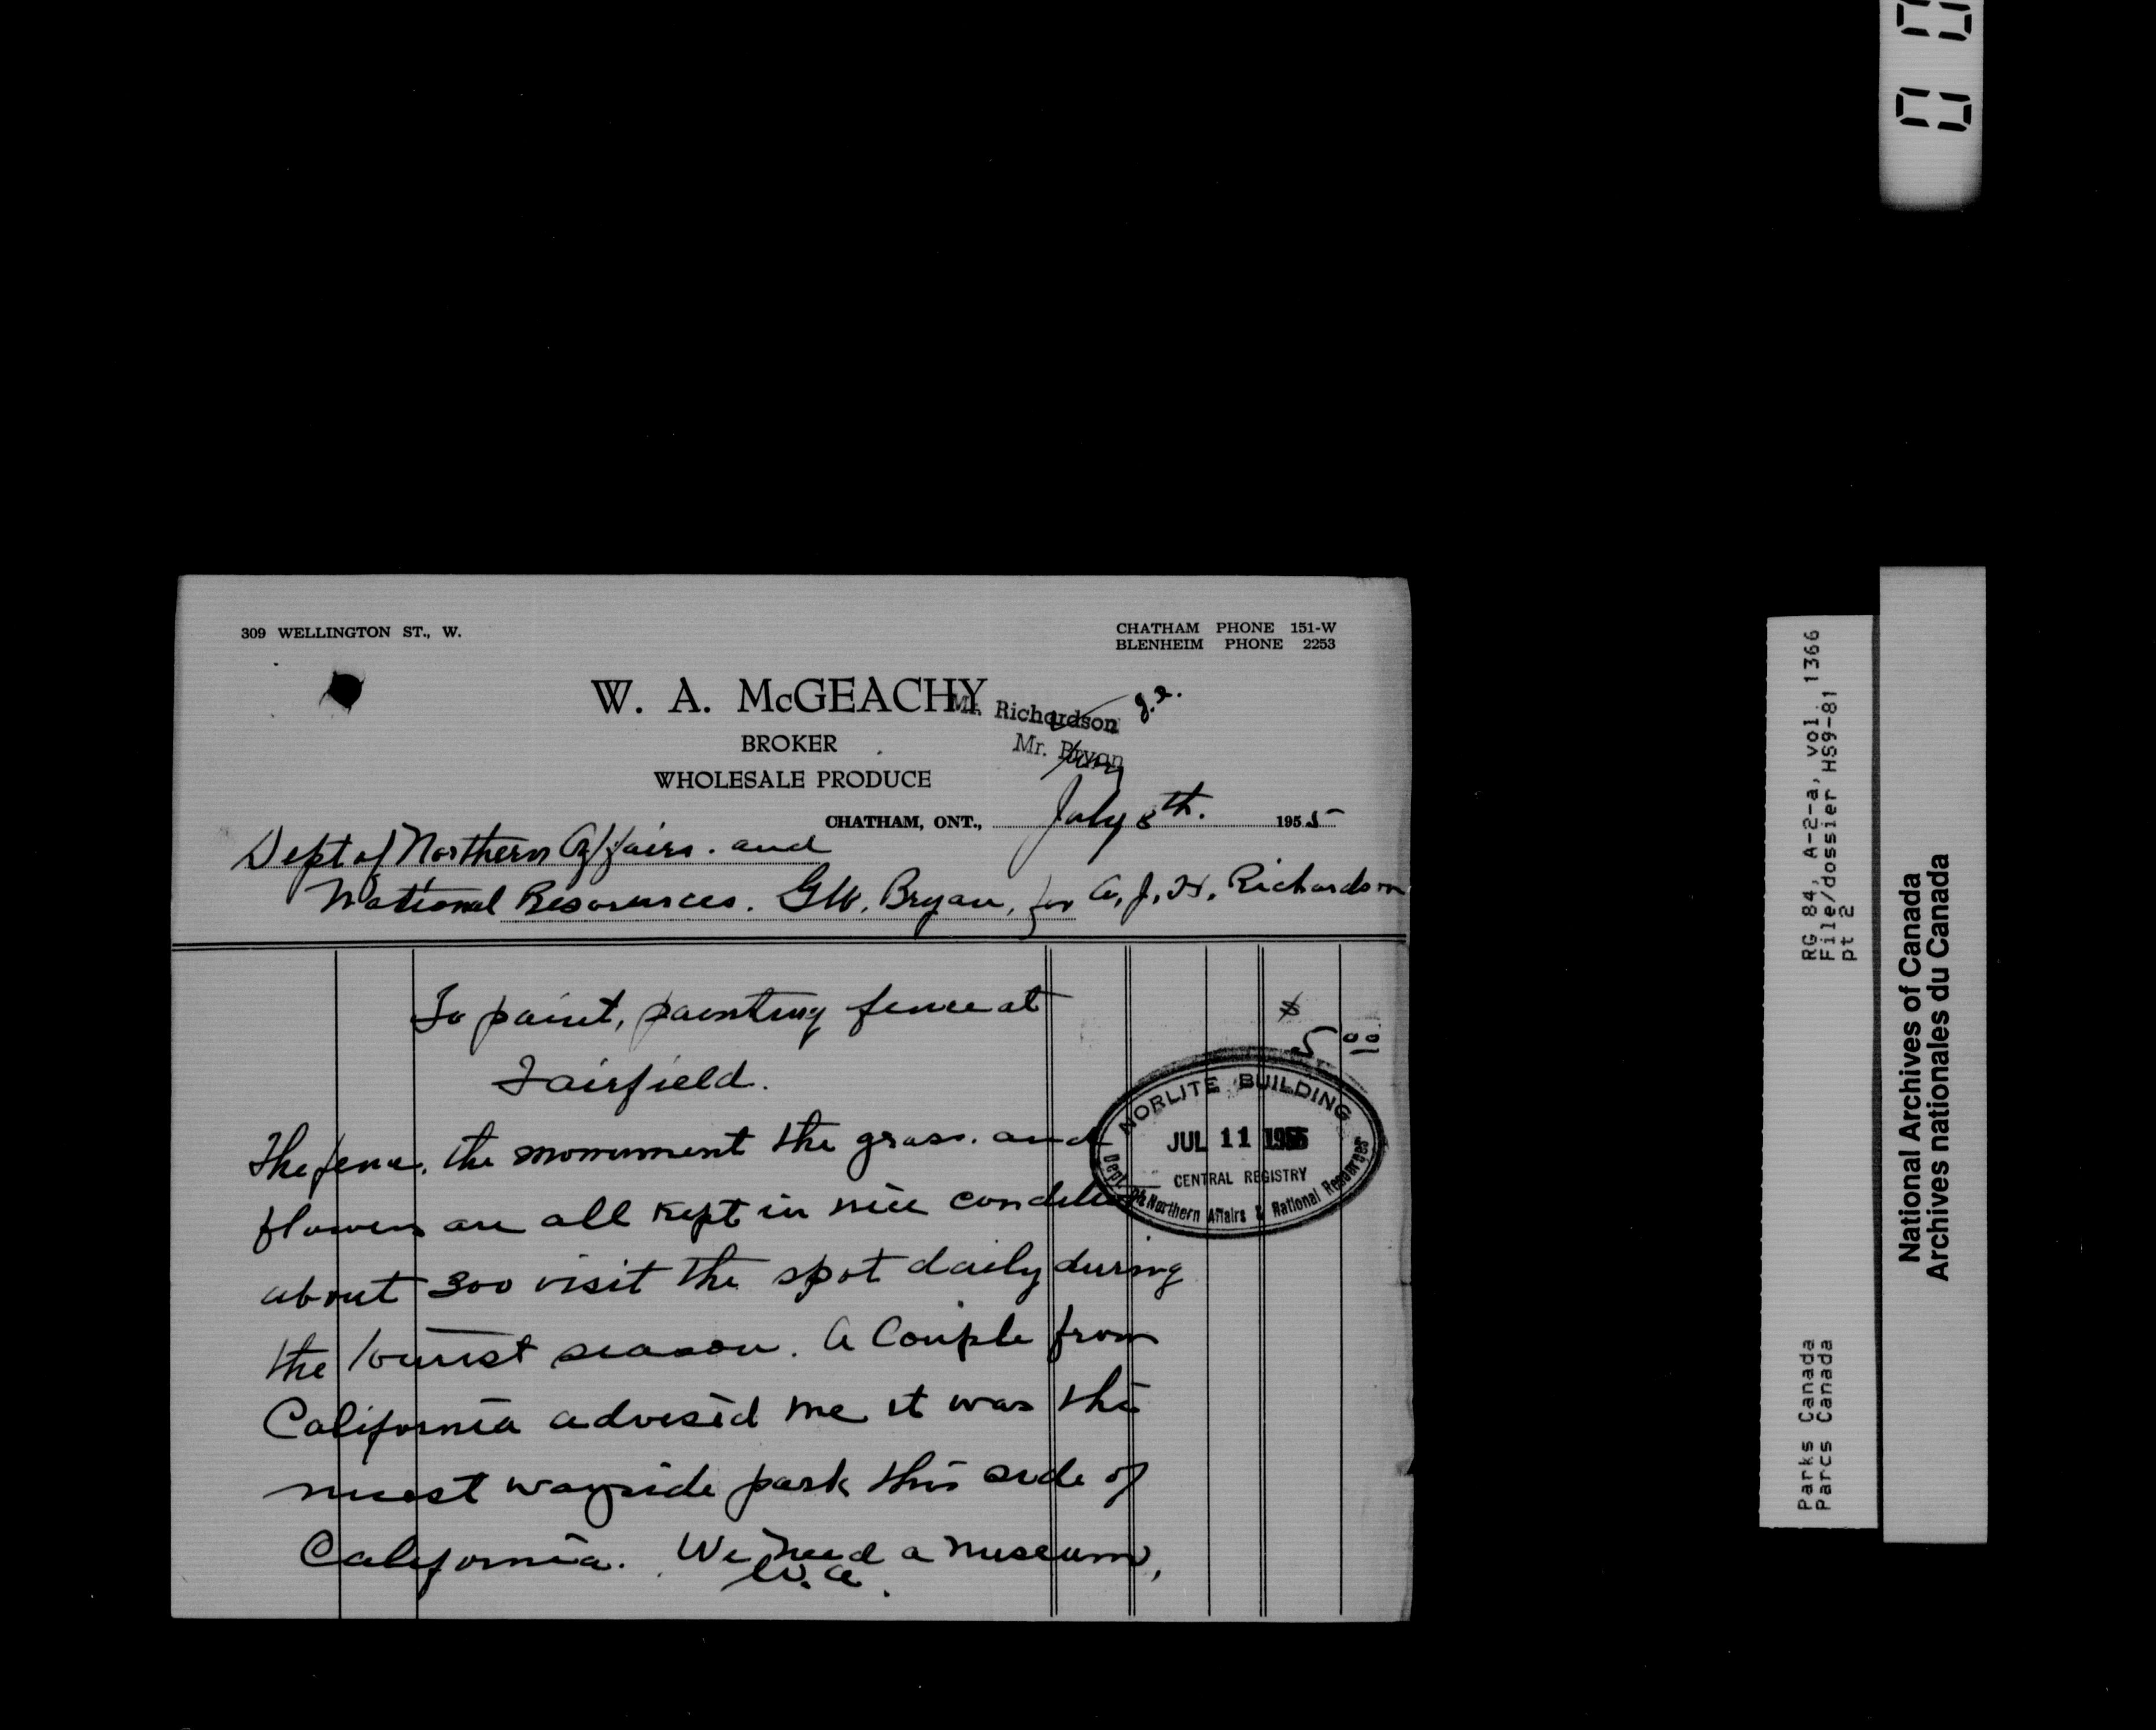 309 WELLINGTON ST., W.
CHATHAM PHONE 151-W
BLENHEIM PHONE 2253
W. A. McGEACHY
Mr. Richardson
BROKER
Mr. Bryan
WHOLESALE PRODUCE
CHATHAM, ONT., July 8th. 1955
Dept of Northern Affairs. and
National Resources. GW. Bryan, for A. J. H. Richardson
To paint, painting fence at
$ 5 00
Fairfield.
NORLITE BUILDING
JUL 11 1955
CENTRAL REGISTRY
Dept. of Northern Affairs & National Resources
The fence, the monument the grass. and
flowers are all kept in nice condition
about 300 visit the spot daily during
the tourist season. A Couple from
California advised me it was the
nicest wayside park this side of
California. We need a museum,
W.A.
RG 84, A-2-a, vol. 1366
File/dossier HS9-81
pt 2
Parks Canada
Parcs Canada
National Archives of Canada
Archives nationales du Canada